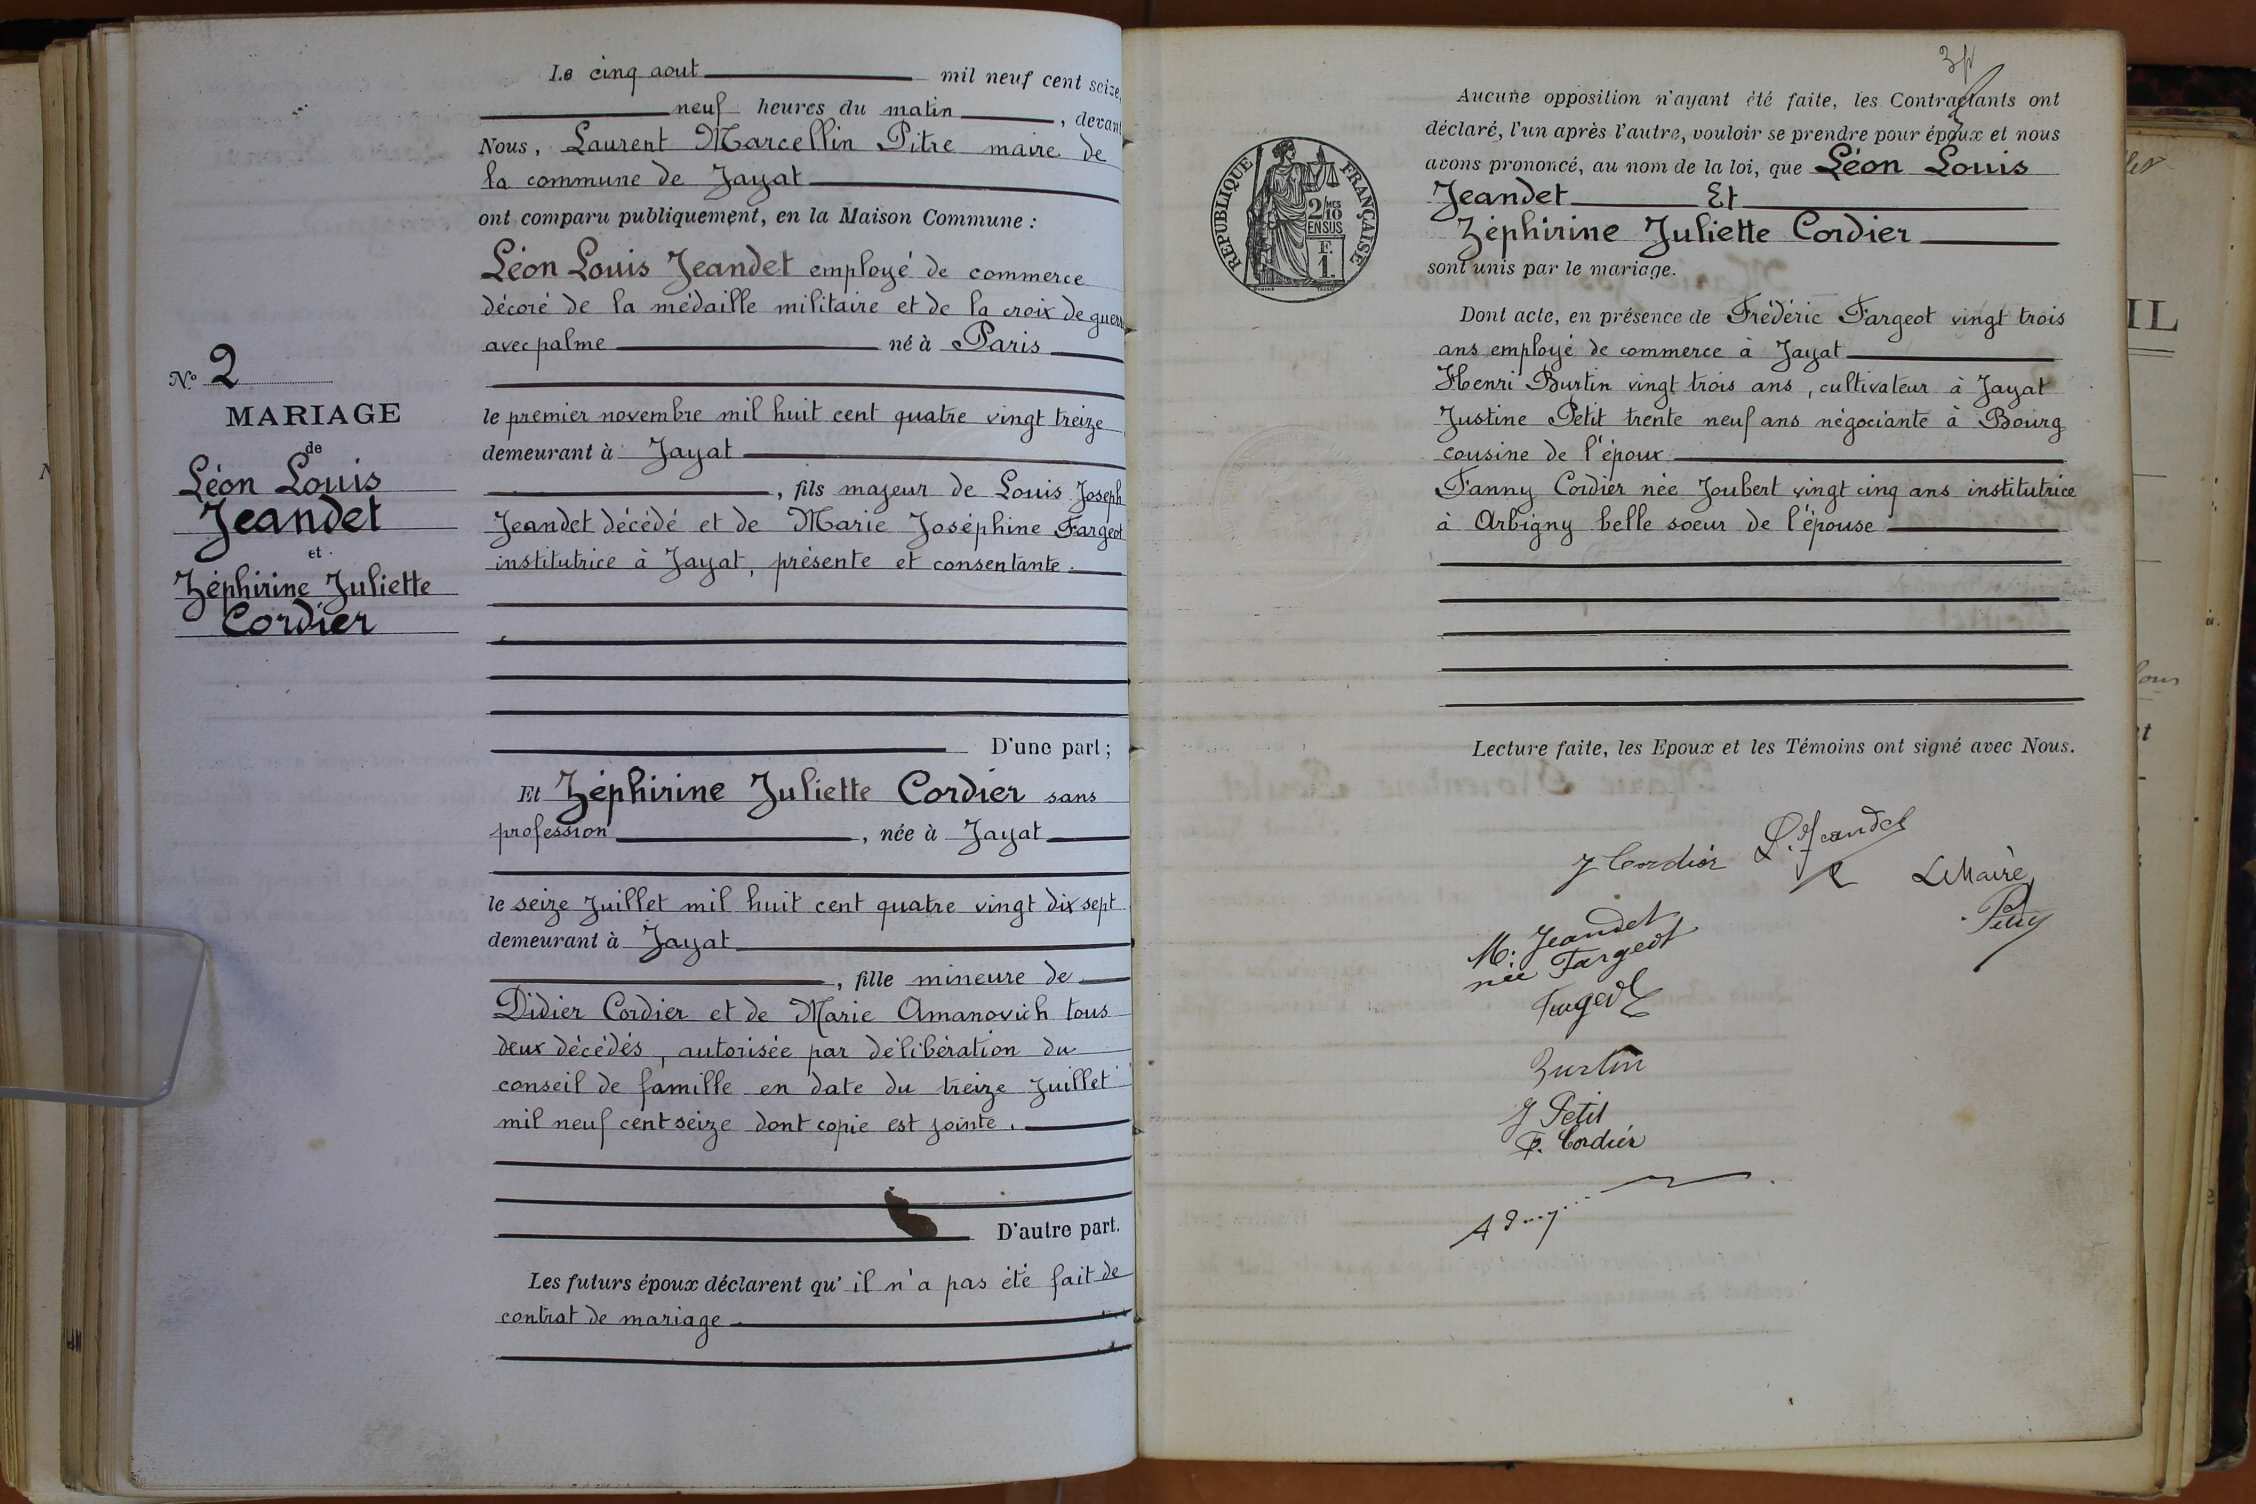 Le cinq aout mil neuf cent seize,
neuf heures du matin, devant
Nous, Laurent Marcellin Pitre maire de
la commune de Jayat
ont comparu publiquement, en la Maison Commune :
Léon Louis Jeandet employé de commerce
décoré de la médaille militaire et de la croix de guerre
avec palme né à Paris
le premier novembre mil huit cent quatre vingt treize
demeurant à Jayat
, fils majeur de Louis Joseph
Jeandet décédé et de Marie Joséphine Fargeot
institutrice à Jayat, présente et consentante.
D'une part ;
Et Zéphirine Juliette Cordier sans
profession, née à Jayat
le seize Juillet mil huit cent quatre vingt dix sept
demeurant à Jayat
, fille mineure de
Didier Cordier et de Marie Amanovich tous
deux décédés, autorisée par délibération du
conseil de famille en date du treize Juillet
mil neuf cent seize dont copie est jointe.
D'autre part.
Les futurs époux déclarent qu'il n'a pas été fait de
contrat de mariage
No 2
MARIAGE
de
Léon Louis
Jeandet
et
Zéphirine Juliette
Cordier
Aucune opposition n'ayant été faite, les Contractants ont
déclaré, l'un après l'autre, vouloir se prendre pour époux et nous
avons prononcé, au nom de la loi, que Léon Louis
Jeandet Et
Zéphirine Juliette Cordier
sont unis par le mariage.
RÉPUBLIQUE FRANÇAISE
2/10 MES
EN SUS
F.
1.
Dont acte, en présence de Frédéric Fargeot vingt trois
ans employé de commerce à Jayat
Henri Burtin vingt trois ans, cultivateur à Jayat
Justine Petit trente neuf ans négociante à Bourg
cousine de l'époux
Fanny Cordier née Joubert vingt cinq ans institutrice
à Arbigny belle soeur de l'épouse
Lecture faite, les Epoux et les Témoins ont signé avec Nous.
J Cordier
L. Jeandet
Le Maire,
M. Jeandet
née Fargeot
Fargeot
Burtin
J Petit
F. Cordier
IL